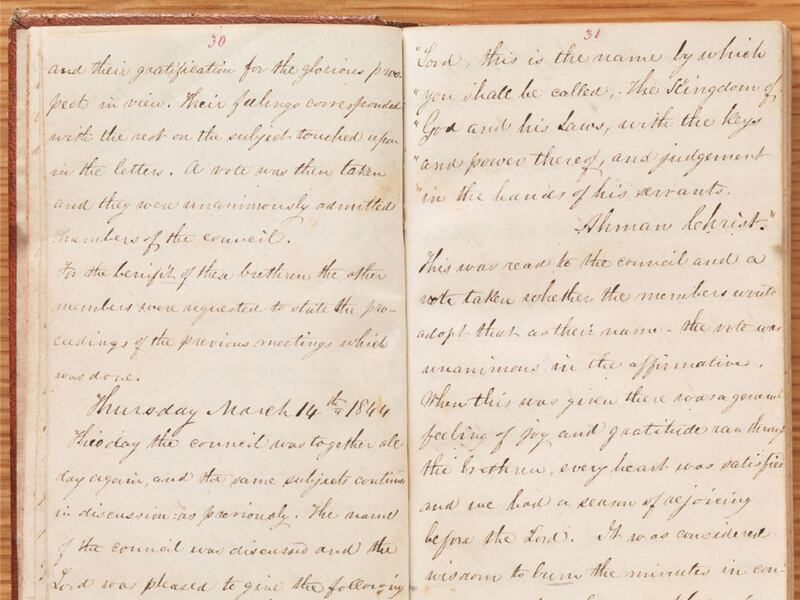 30
and their gratification for the glorious pros-
pect in view. Their feelings corresponded
with the rest on the subject touched upon
in the letters. A vote was then taken
and they were unanimously admitted
members of the council.
For the benefit of these brethren the other
members were requested to state the pro-
ceedings of the previous meetings which
was done.
Thursday March 14th 1844
This day the council was together all
day again, and the same subjects continued
in discussion as previously. The name
of the council was discussed and the
Lord was pleased to give the following
31
"Lord, this is the name by which
"you shall be called, The Kingdom of
"God and his Laws, with the keys
"and power thereof, and judgement
"in the hands of his servants.
Ahman Christ."
This was read to the council and a
vote taken whether the members would
adopt that as their name - the vote was
unanimous in the affirmative.
When this was given there was a general
feeling of joy and gratitude ran through
the brethren, every heart was satisfied
and we had a season of rejoicing
before the Lord. It was considered
wisdom to burn the minutes in con-